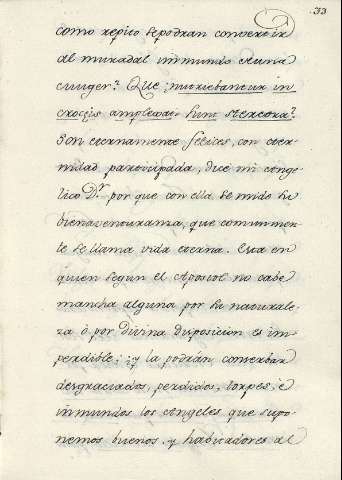 33
como repito se podran convertir
al muradal inmundo de una
muger? Que; nutriebantur in
croceis amplexati sunt stercora?
Son eternamente felices, con eter-
nidad participada, dice mi Ange-
lico Dr. por que con ella se mide su
bienaventuranza, que comunmen-
te se llama vida eterna. Esta en
quien segun el Apostol no cabe
mancha alguna por su naturale-
za ò por Divina disposicion es im-
perdible; ¿y la podrán conservar
desgraciados, perdidos, torpes, è
inmundos los Angeles que supo-
nemos buenos, y habitadores al